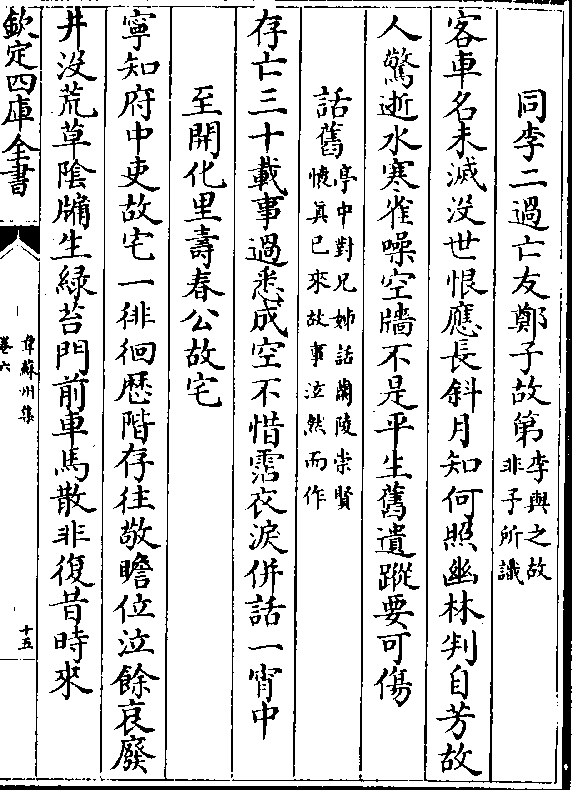 同李二過亡友鄭子故第李與之故非予所識
客車名未滅没世恨應長斜月知何照幽林判自芳故
人驚逝水寒雀噪空牆不是平生舊遺蹤要可傷
話舊亭中對兄姊話蘭陵崇賢懐真已來故事泣然而作
存亡三十載事過悉成空不惜霑衣淚併話一宵中
至開化里壽春公故宅
寧知府中吏故宅一徘徊歷階存往敬瞻位泣餘哀廢
井没荒草陰牖生緑苔門前車馬散非復昔時來
欽定四庫全書
韋蘇州集
卷六
十五